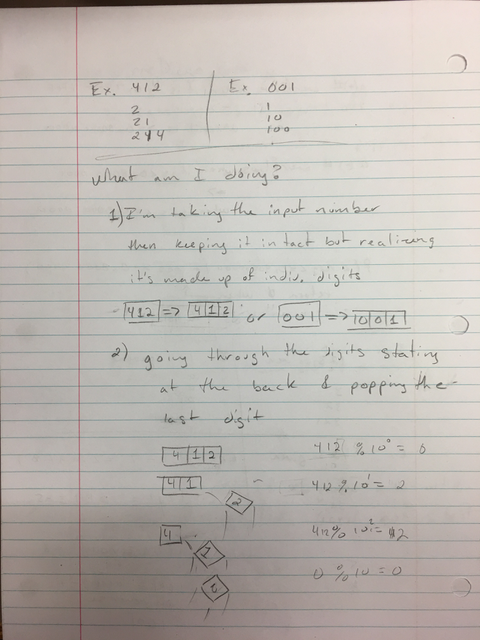 Ex. 412
2
21
214
Ex. 001
1
10
100
What am I doing?
1) I'm taking the input number
then keeping it in tact but realizing
it's made up of indiv. digits
412 => 4 1 2 or 001 => 0 0 1
2) going through the digits stating
at the back & popping the
last digit
4 1 2
4 1
2
4
1
2
412 % 10⁰ = 0
412 % 10¹ = 2
412 % 10² = 12
0 % 10 = 0